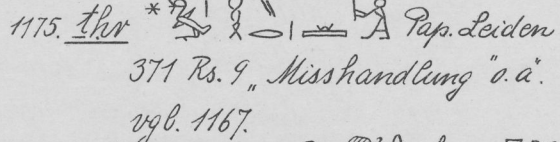 1175. thr Pap. Leiden
371 Rs. 9 „Misshandlung" o. ä.
vgl. 1167.